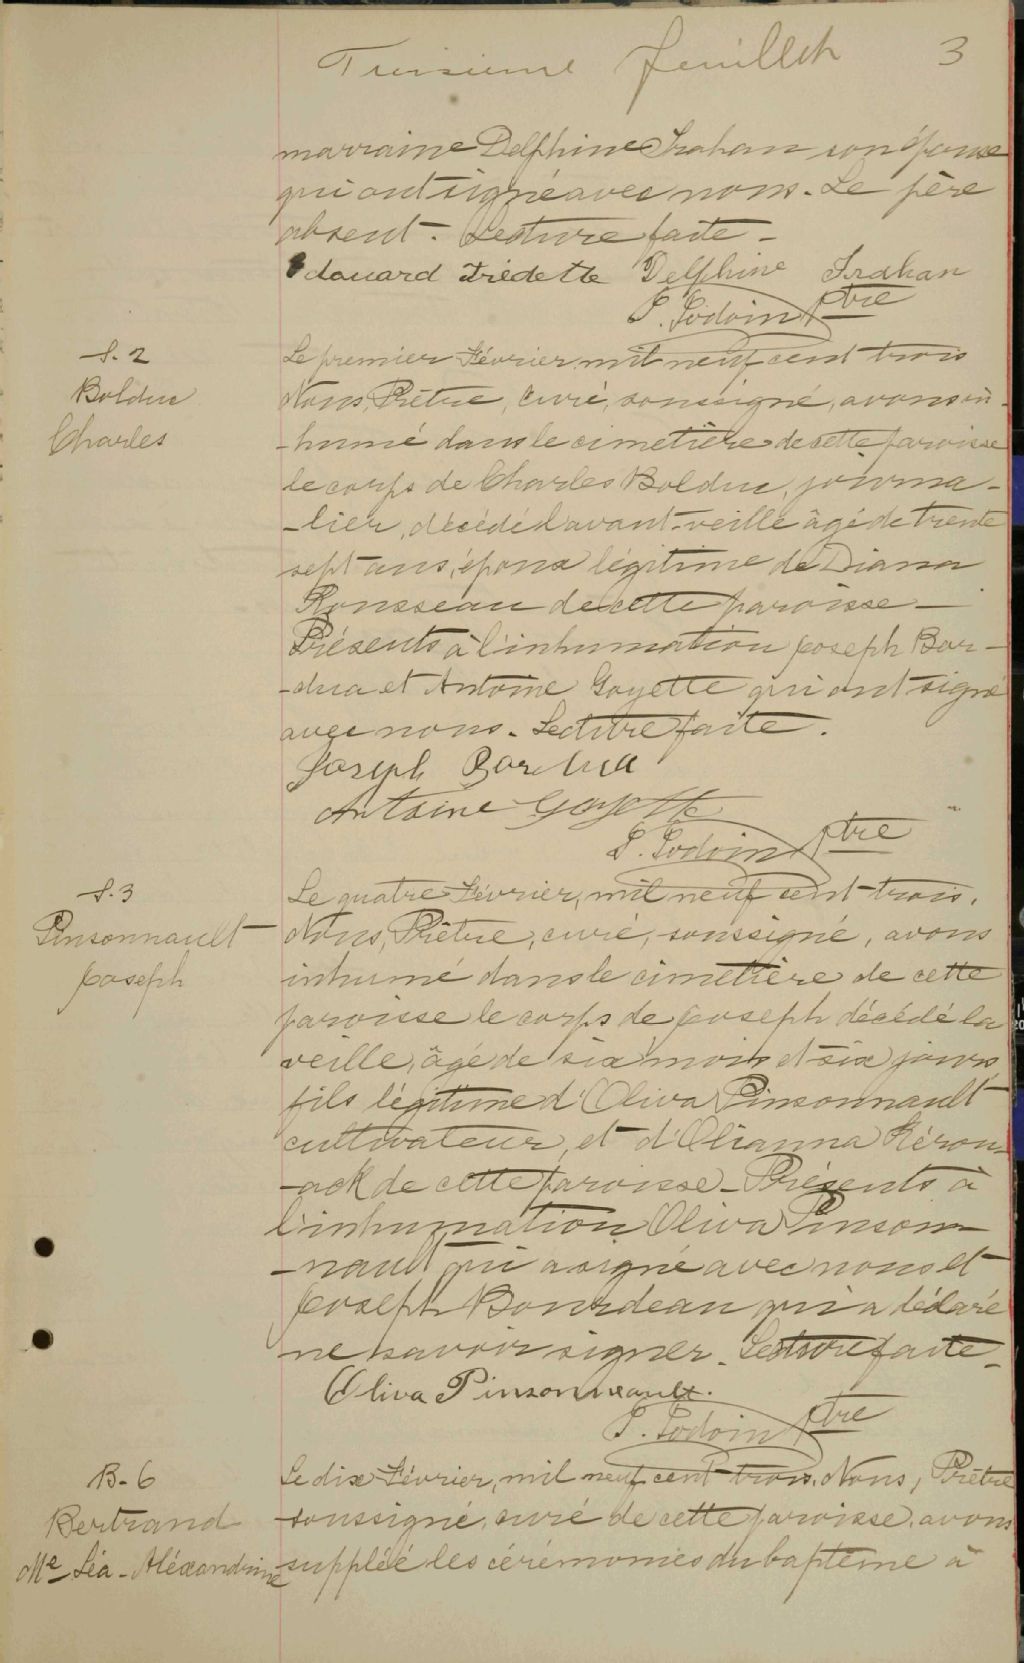 Troisième feuillet 3
marraine Delphine Trahan son épouse
qui ont signé avec nous. Le père
absent. Lecture faite -
Edouard Frédette Delphine Trahan
Ptre
S. 2
Bolduc
Charles
Le premier Février mil neuf cent trois
Nous, Prêtre, Curé, soussigné, avons in-
-humé dans le cimetière de cette paroisse
le corps de Charles Bolduc, journa-
-lier, décédé l'avant-veille âgé de trente
sept ans, époux légitime de Diana
Rousseau de cette paroisse -
Présents à l'inhumation Joseph Bar-
-dua et Antoine Goyette qui ont signé
avec nous. Lecture faite.
Joseph Bardua
Antoine Goyette
Ptre
S. 3
Pinsonnault
Joseph
Le quatre Février, mil neuf cent-trois.
Nous, Prêtre, curé, soussigné, avons
inhumé dans le cimetière de cette
paroisse le corps de Joseph décédé la
veille, âgé de six mois et six jours,
fils légitime d'Oliva Pinsonnault
cultivateur, et d'Olianna Kérou-
-ack de cette paroisse - Présents à
l'inhumation Oliva Pinson-
-nault qui a signé avec nous et
Joseph Bourdeau qui a déclaré
ne savoir signer. Lecture faite -
Oliva Pinsonneault.
Ptre
B - 6
Bertrand
Me Léa - Aléxandrine
Le dix Février, mil neuf cent trois. Nous, Prêtre
soussigné, curé de cette paroisse, avons
suppléé les cérémonies du baptême à